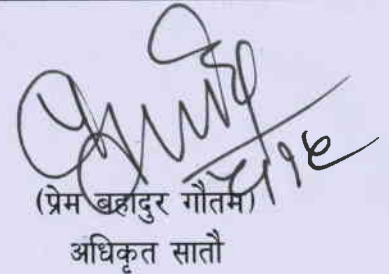 ५।१६
(प्रेम बहादुर गौतम)
अधिकृत सातौ